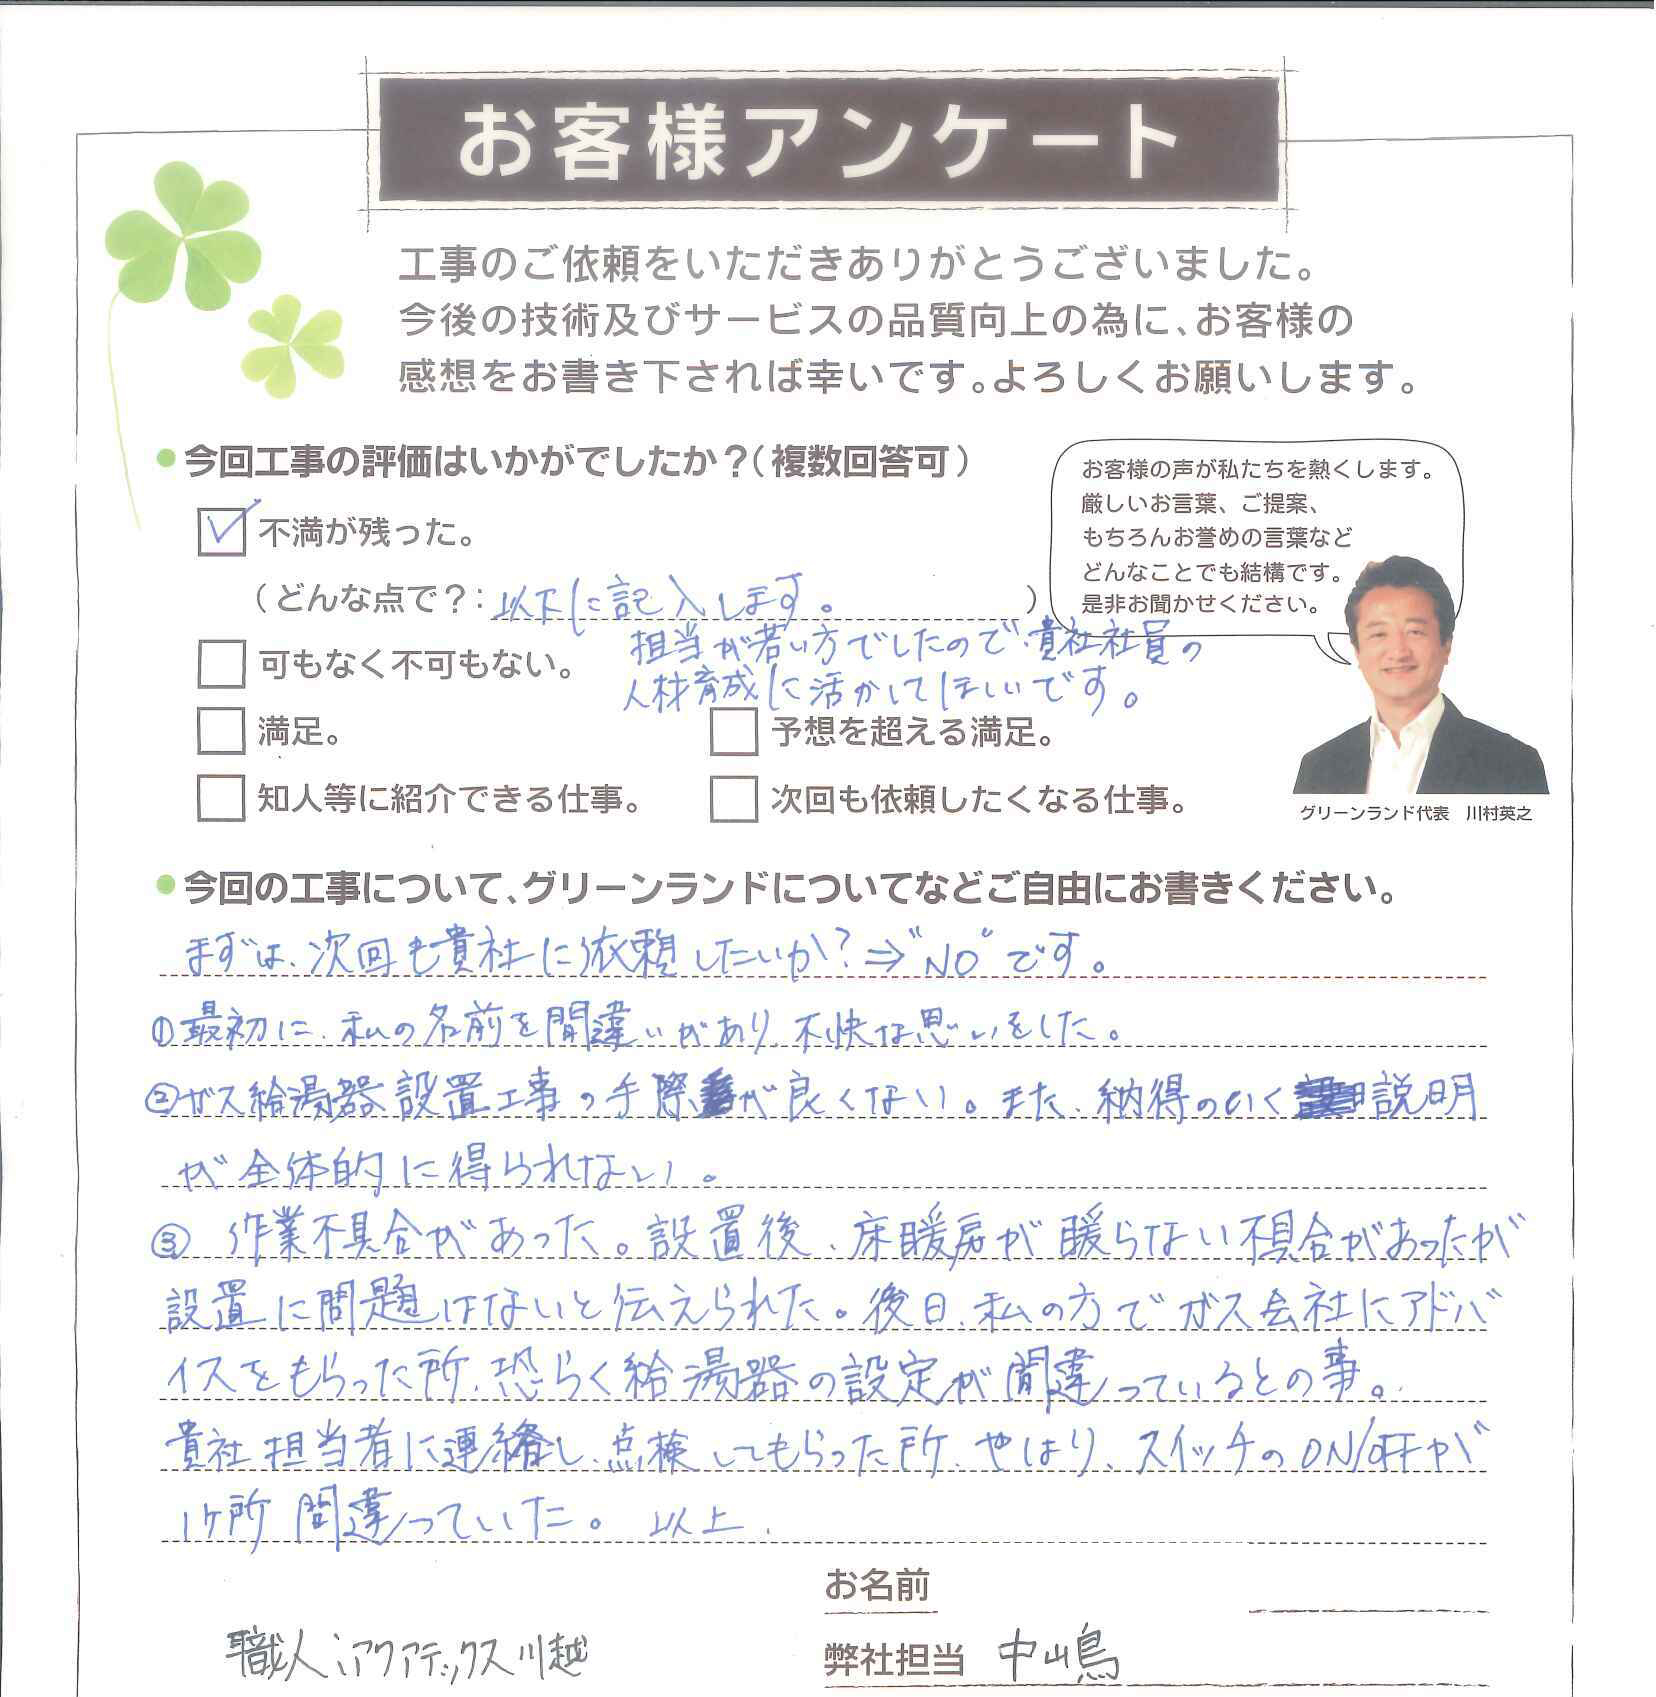 お客様アンケート
工事のご依頼をいただきありがとうございました。
今後の技術及びサービスの品質向上の為に、お客様の
感想をお書き下されば幸いです。よろしくお願いします。
●今回工事の評価はいかがでしたか？（複数回答可）
お客様の声が私たちを熱くします。
厳しいお言葉、ご提案、
もちろんお誉めの言葉など
どんなことでも結構です。
是非お聞かせください。
不満が残った。
（どんな点で？：以下に記入します。）
担当が若い方でしたので、貴社社員の
人材育成に活かしてほしいです。
可もなく不可もない。
満足。
予想を超える満足。
知人等に紹介できる仕事。
次回も依頼したくなる仕事。
グリーンランド代表　川村英之
●今回の工事について、グリーンランドについてなどご自由にお書きください。
まずは、次回も貴社に依頼したいか？⇒"NO"です。
①最初に、私の名前を間違いがあり、不快な思いをした。
②ガス給湯器設置工事の手際が良くない。また、納得のいく説明
が全体的に得られない。
③ 作業不具合があった。設置後、床暖房が暖らない不具合があったが
設置に問題はないと伝えられた。後日、私の方でガス会社にアドバ
イスをもらった所、恐らく給湯器の設定が間違っているとの事。
貴社担当者に連絡し、点検してもらった所、やはり、スイッチのON/OFFが
1ヶ所間違っていた。 以上.
お名前
職人:アクアテックス川越
弊社担当 中山鳥